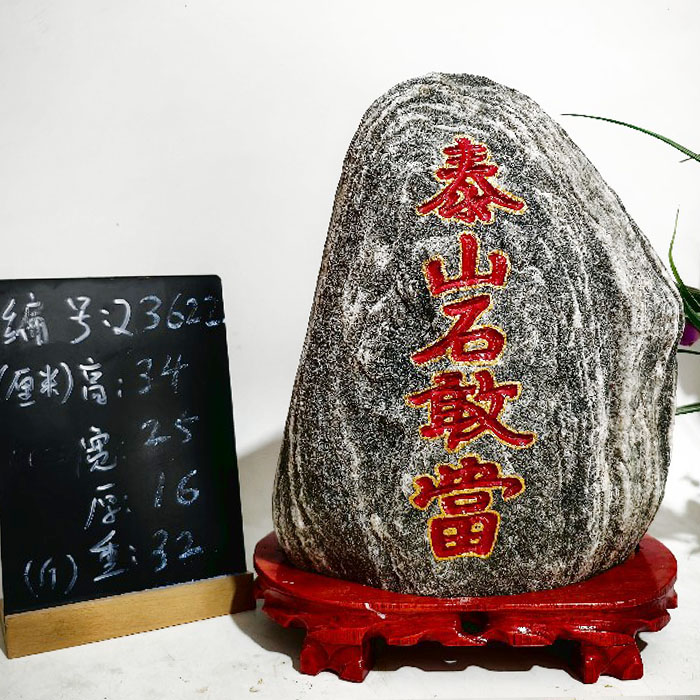 编号:23622
(厘米)高:34
宽:25
厚:16
(斤)重:32
泰山石敢當